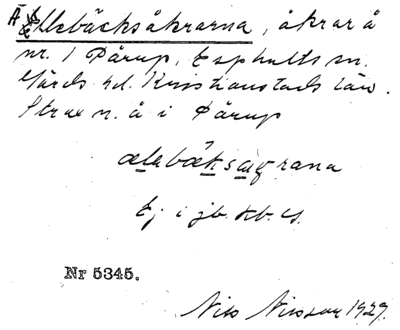 Ällebäcksåkrarna, åkrar å
nr. 1 Pårup, Esphults sn.
Gärds hd. Kristianstads län.
Strax n. å i Pårup
ælebæksåɋrana
Ej i jb. kb. ls.
Nr 5345.
Nils Nilsson 1929.